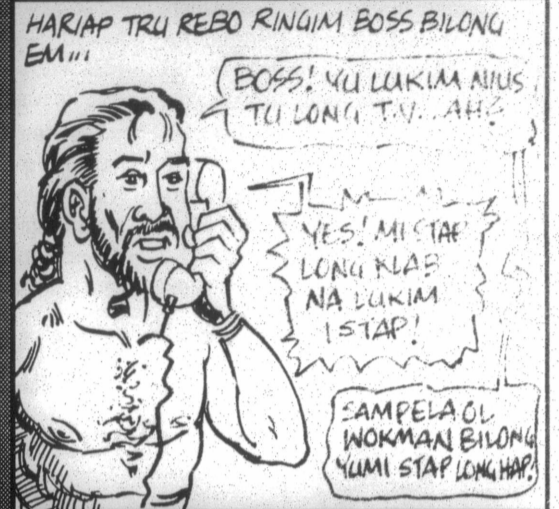 HARIAP TRU REBO RINGIM BOSS BILONG
EM...
BOSS! YU LUKIM NIUS
TU LONG T.V... AH?
YES! MI STAP
LONG KLAB
NA LUKIM
I STAP!
SAMPELA OL
WOKMAN BILONG
YUMI STAP LONG HAP!